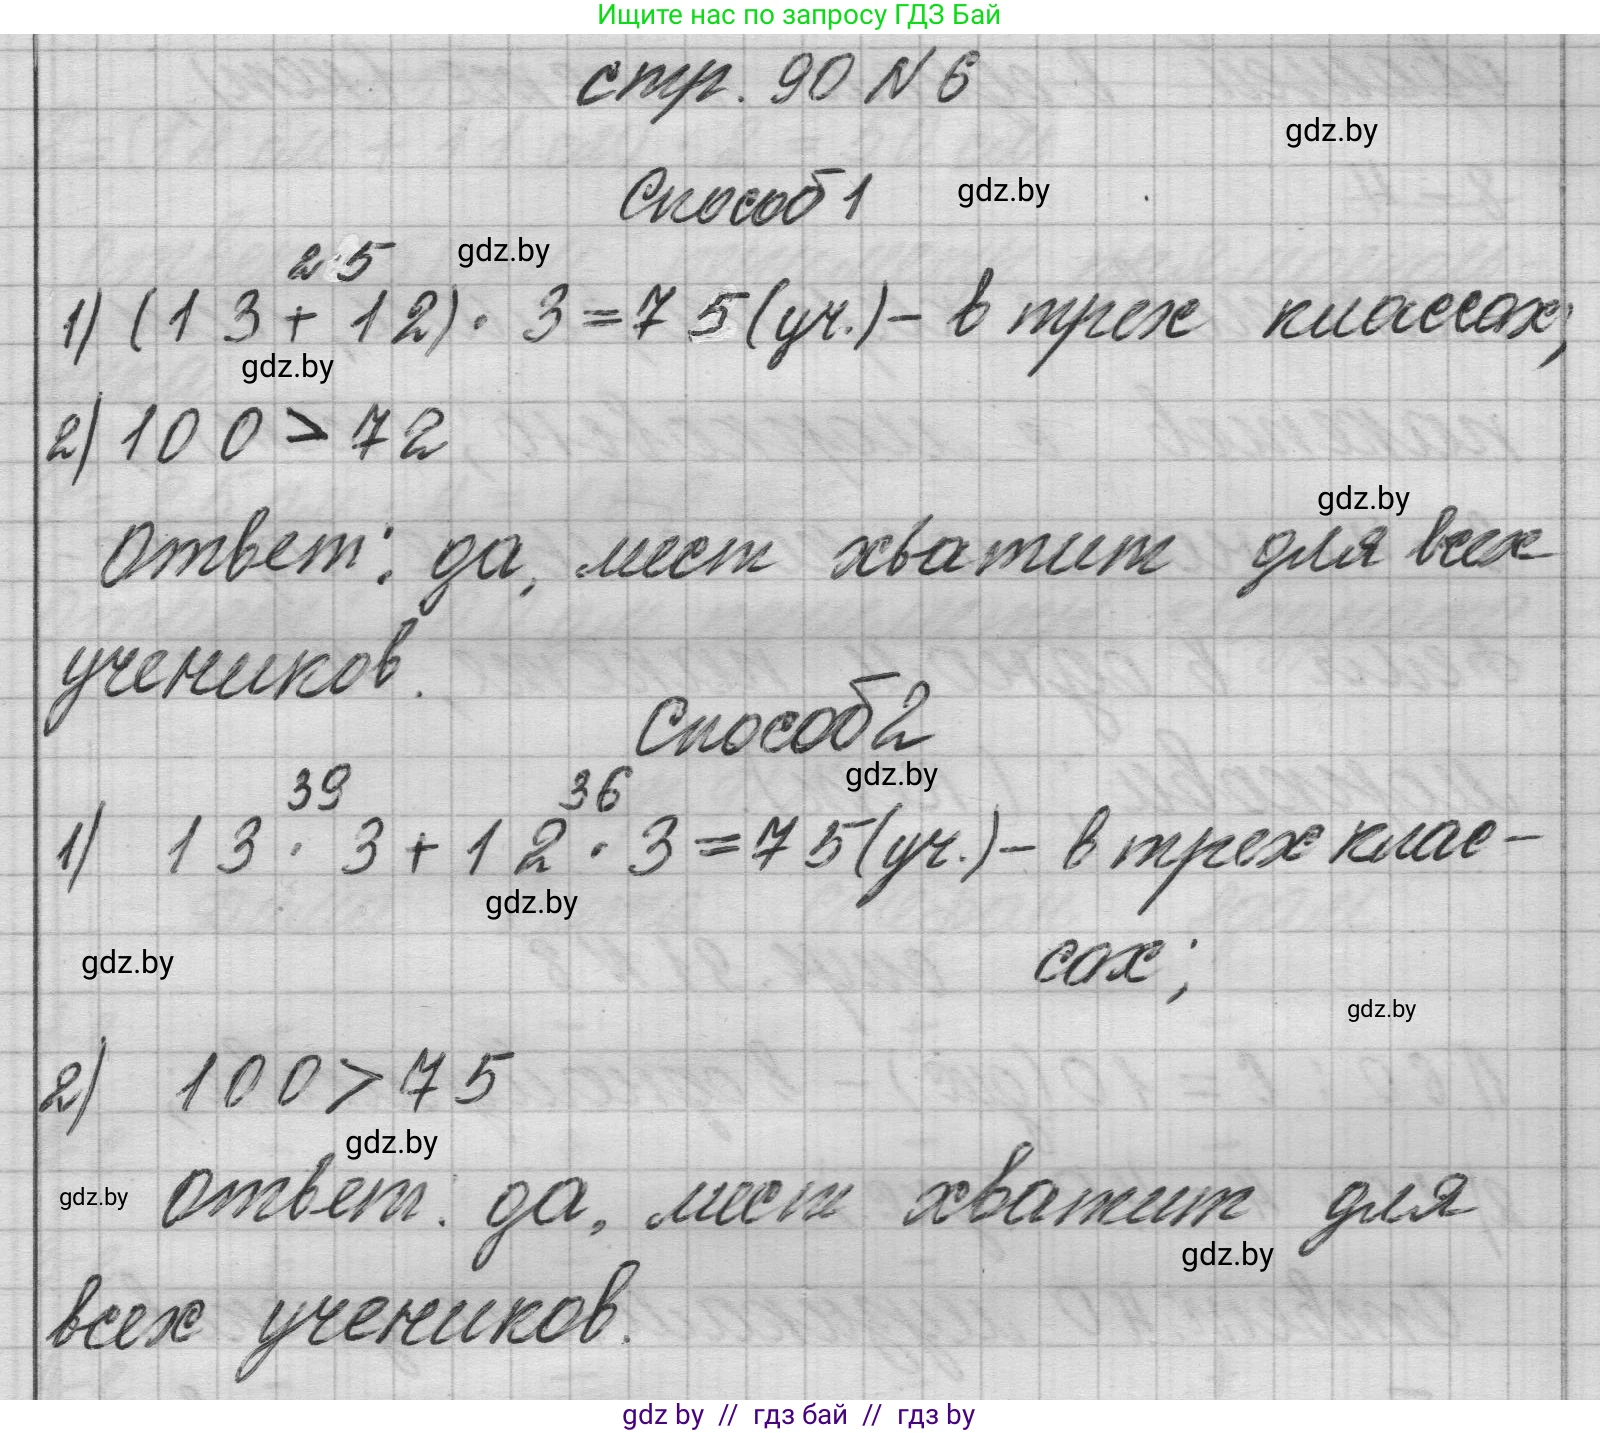 Ищите нас по запросу ГДЗ Бай
стр. 90 N 6
gdz.by
Способ 1 gdz.by
25 gdz.by
1) (13 + 12) · 3 = 75 (уч.) – в трех классах;
gdz.by
2) 100 > 72
gdz.by
Ответ: да, мест хватит для всех
учеников.
Способ 2
gdz.by
39 36
1) 13 · 3 + 12 · 3 = 75 (уч.) – в трех клас-
gdz.by
gdz.by сах;
gdz.by
2) 100 > 75
gdz.by
gdz.by Ответ: да, мест хватит для
gdz.by
всех учеников.
gdz by // гдз бай // гдз by